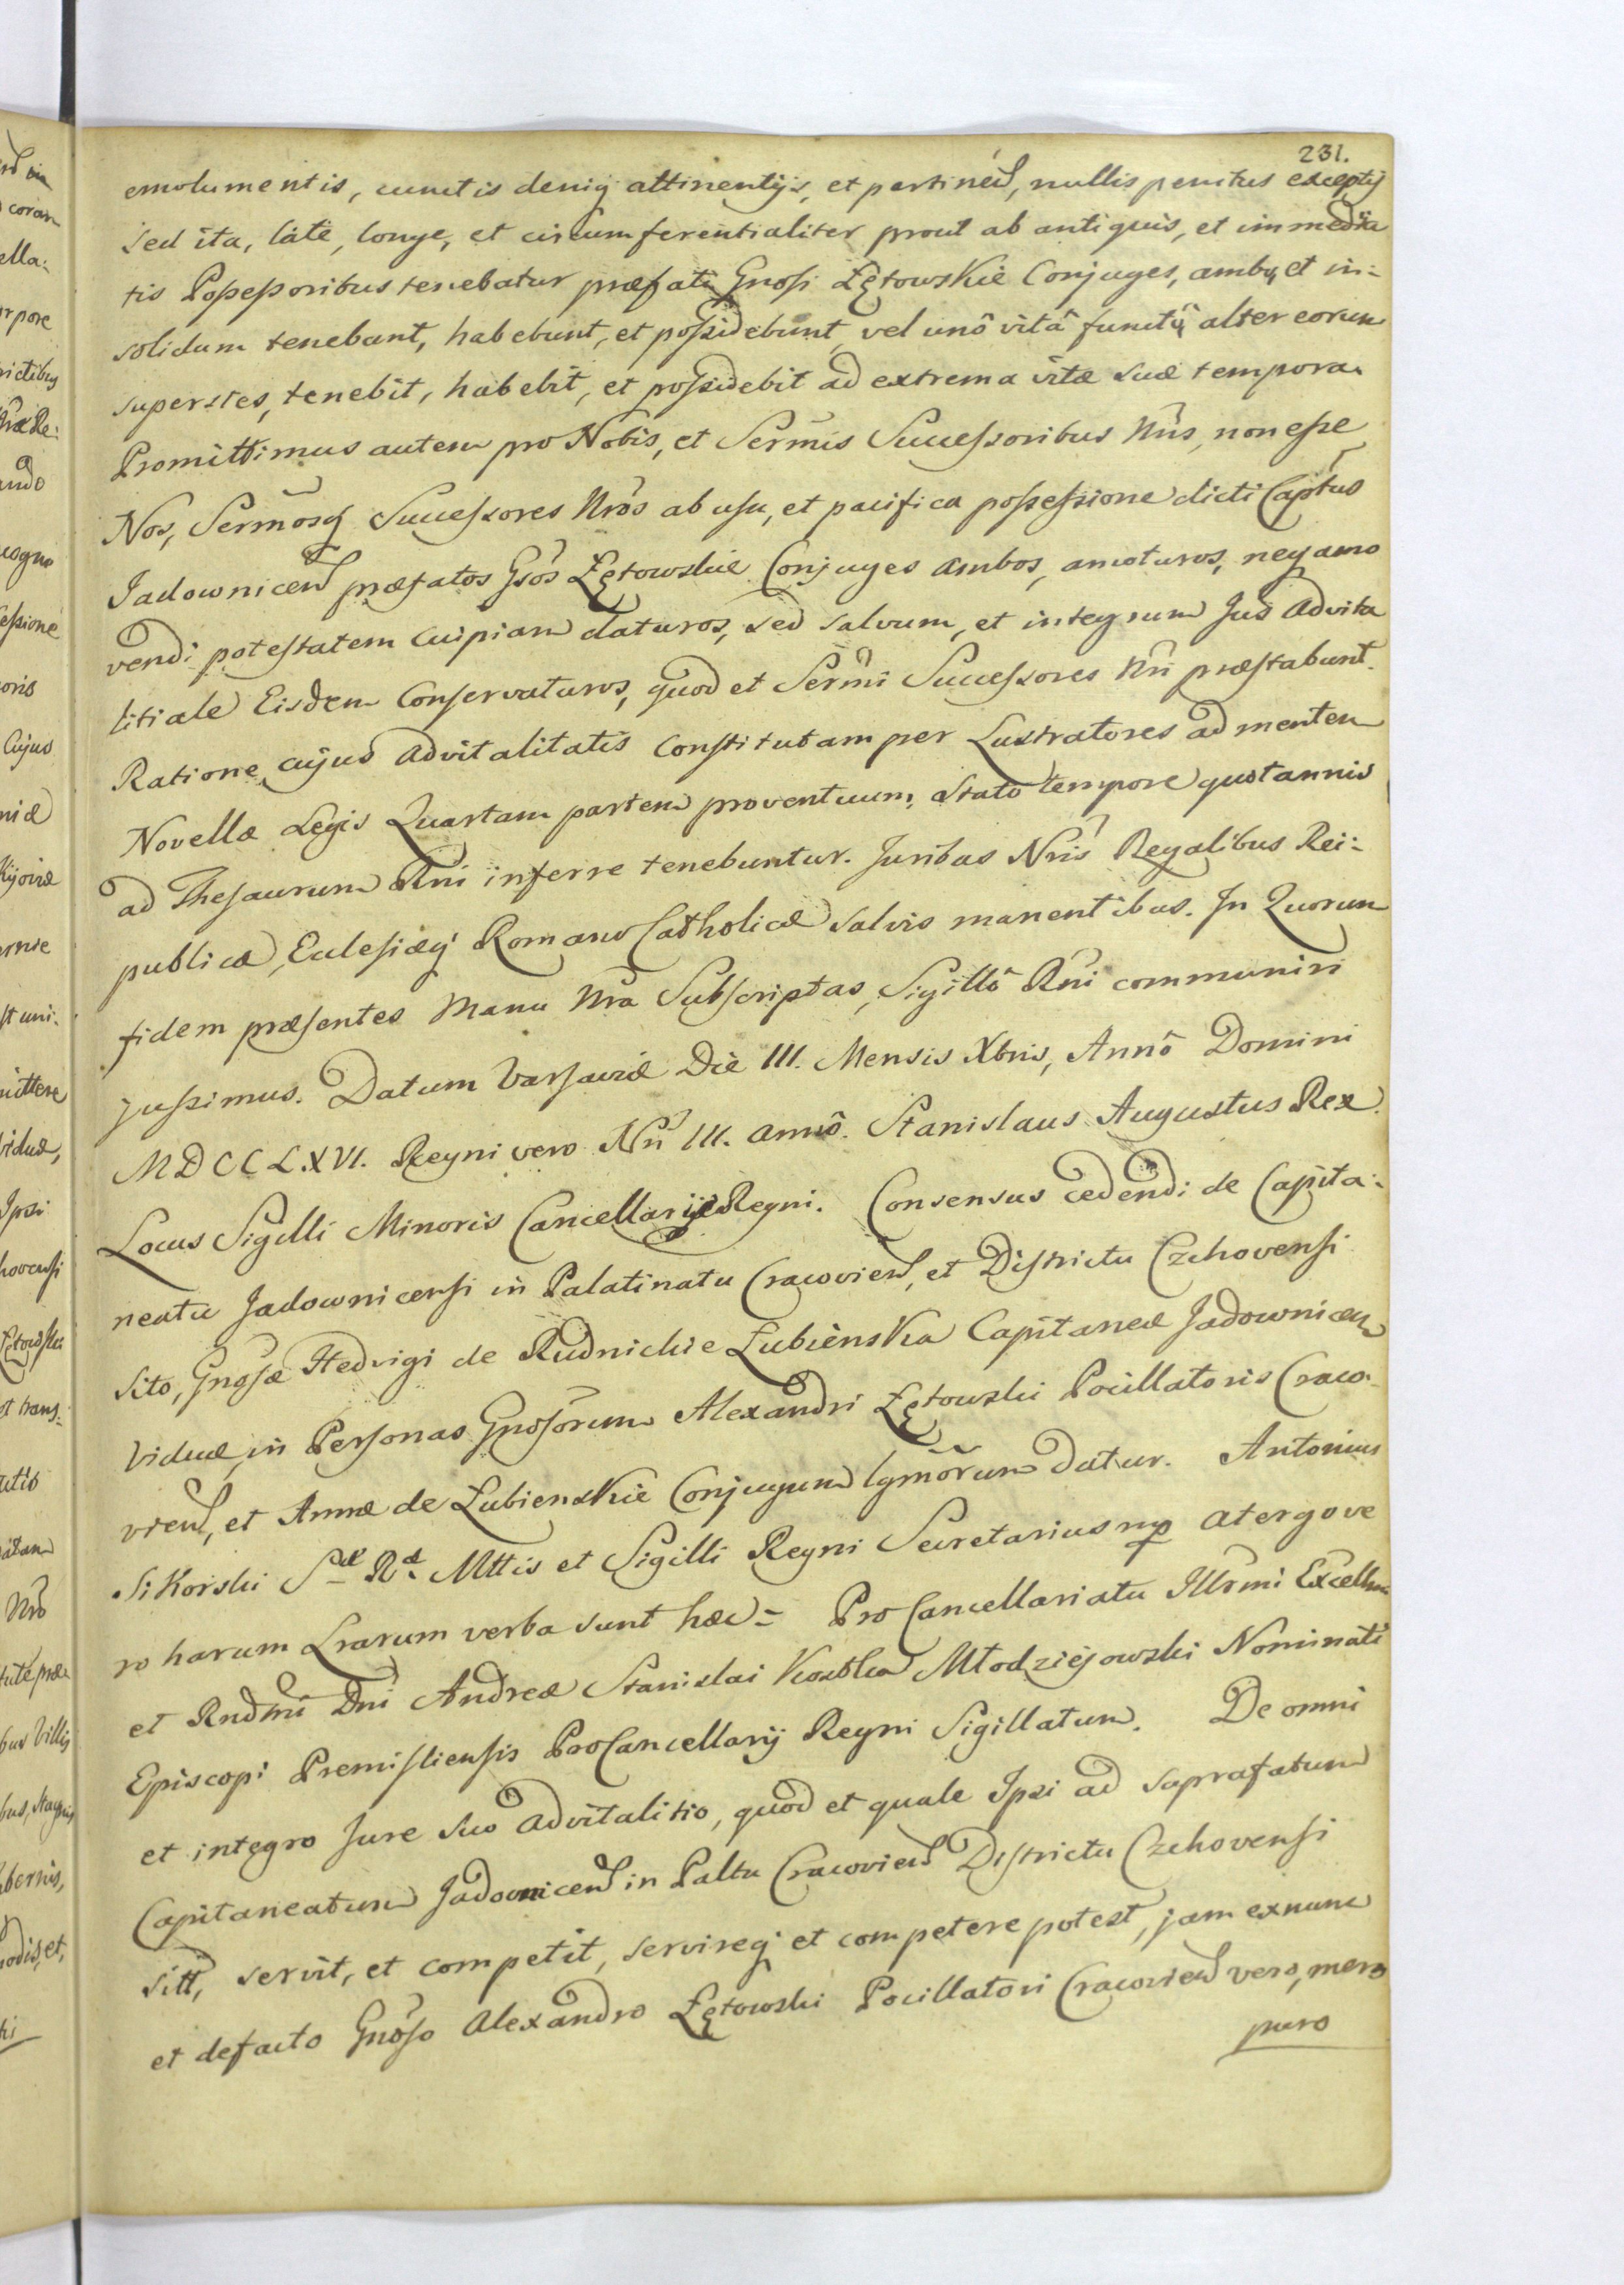 231.
emolumentis, cunctis deniq attinentijs, et pertinen, nullis penitus exceptis
sed ita, latè, longe, et circumferentialiter prout ab antiquis, et immedia
tis Possessoribus tenebatur præfati Gnosi Łętowskie Conjuges, ambo, et in-
solidum tenebunt, habebunt, et possidebunt, vel unô vitâ functô, alter eorum
superstes, tenebit, habebit, et possidebit ad extrema vitæ suæ tempora.
Promittimus autem pro Nobis, et Sermis Successoribus Nris, non esse
Nos, Sermosq Successores Nros ab usu, et pacifica possessione dicti Captus
Jadownicen præfatos Gsos Łętowskie Conjuges ambos, amoturos, neq amo
vendi potestatem cuipiam daturos, sed salvum, et integrum Jus advita
litiale Eisdem Conservaturos, quod et Sermi Successores Nri præstabunt.
Ratione cujus advitalitatis Constitutam per Lustratores ad mentem
Novellæ Legis Quartam partem proventuum, stato tempore quotannis
ad Thesaurum Rni inferre tenebuntur. Juribus Nris Regalibus Rei-
publicæ, Ecclesiæq Romano Catholicæ salvis manentibus. In Quorum
fidem præsentes Manu Nra Subscriptas, Sigillô Rni communiri
jussimus. Datum Varsaviæ Die III. Mensis Xbris, Annô Domini
MDCCLXVI. Regni vero Nri III. annô. Stanislaus Augustus Rex.
Locus Sigilli Minoris Cancellarijæ Regni. Consensus cedendi de Capita-
neatu Jadownicensi in Palatinatu Cracovien, et Districtu Czchovensi
sito, Gnosæ Hedvigi de Rudnickie Łubieńska Capitaneæ Jadownicen
Viduæ, in Personas Gnosorum Alexandri Łętowski Pocillatoris Craco-
vien, et Annæ de Łubienskie Conjugum lgmorum datur. Antonius
Sikorski Sæ Ræ Mttis et Sigilli Regni Secretarius mp atergo ve
ro harum Lrarum verba sunt hæc= Pro Cancellariatu Illrmi Excellmi
et Rndmi Dni Andreæ Stanislai Kostka Młodziejowski Nominati
Episcopi Premisliensis ProCancellarij Regni Sigillatum. De omni
et integro Jure suo advitalitio, quod et quale Ipsi ad saprafatum
Capitaneatum Jadownicen in Paltu Cracovien Districtu Czchovensi
sitt, servit, et competit, servireq et competere potest, jam exnunc
et defacto Gnoso Alexandro Łętowski Pocillatori Cracovien vero, mero
puro